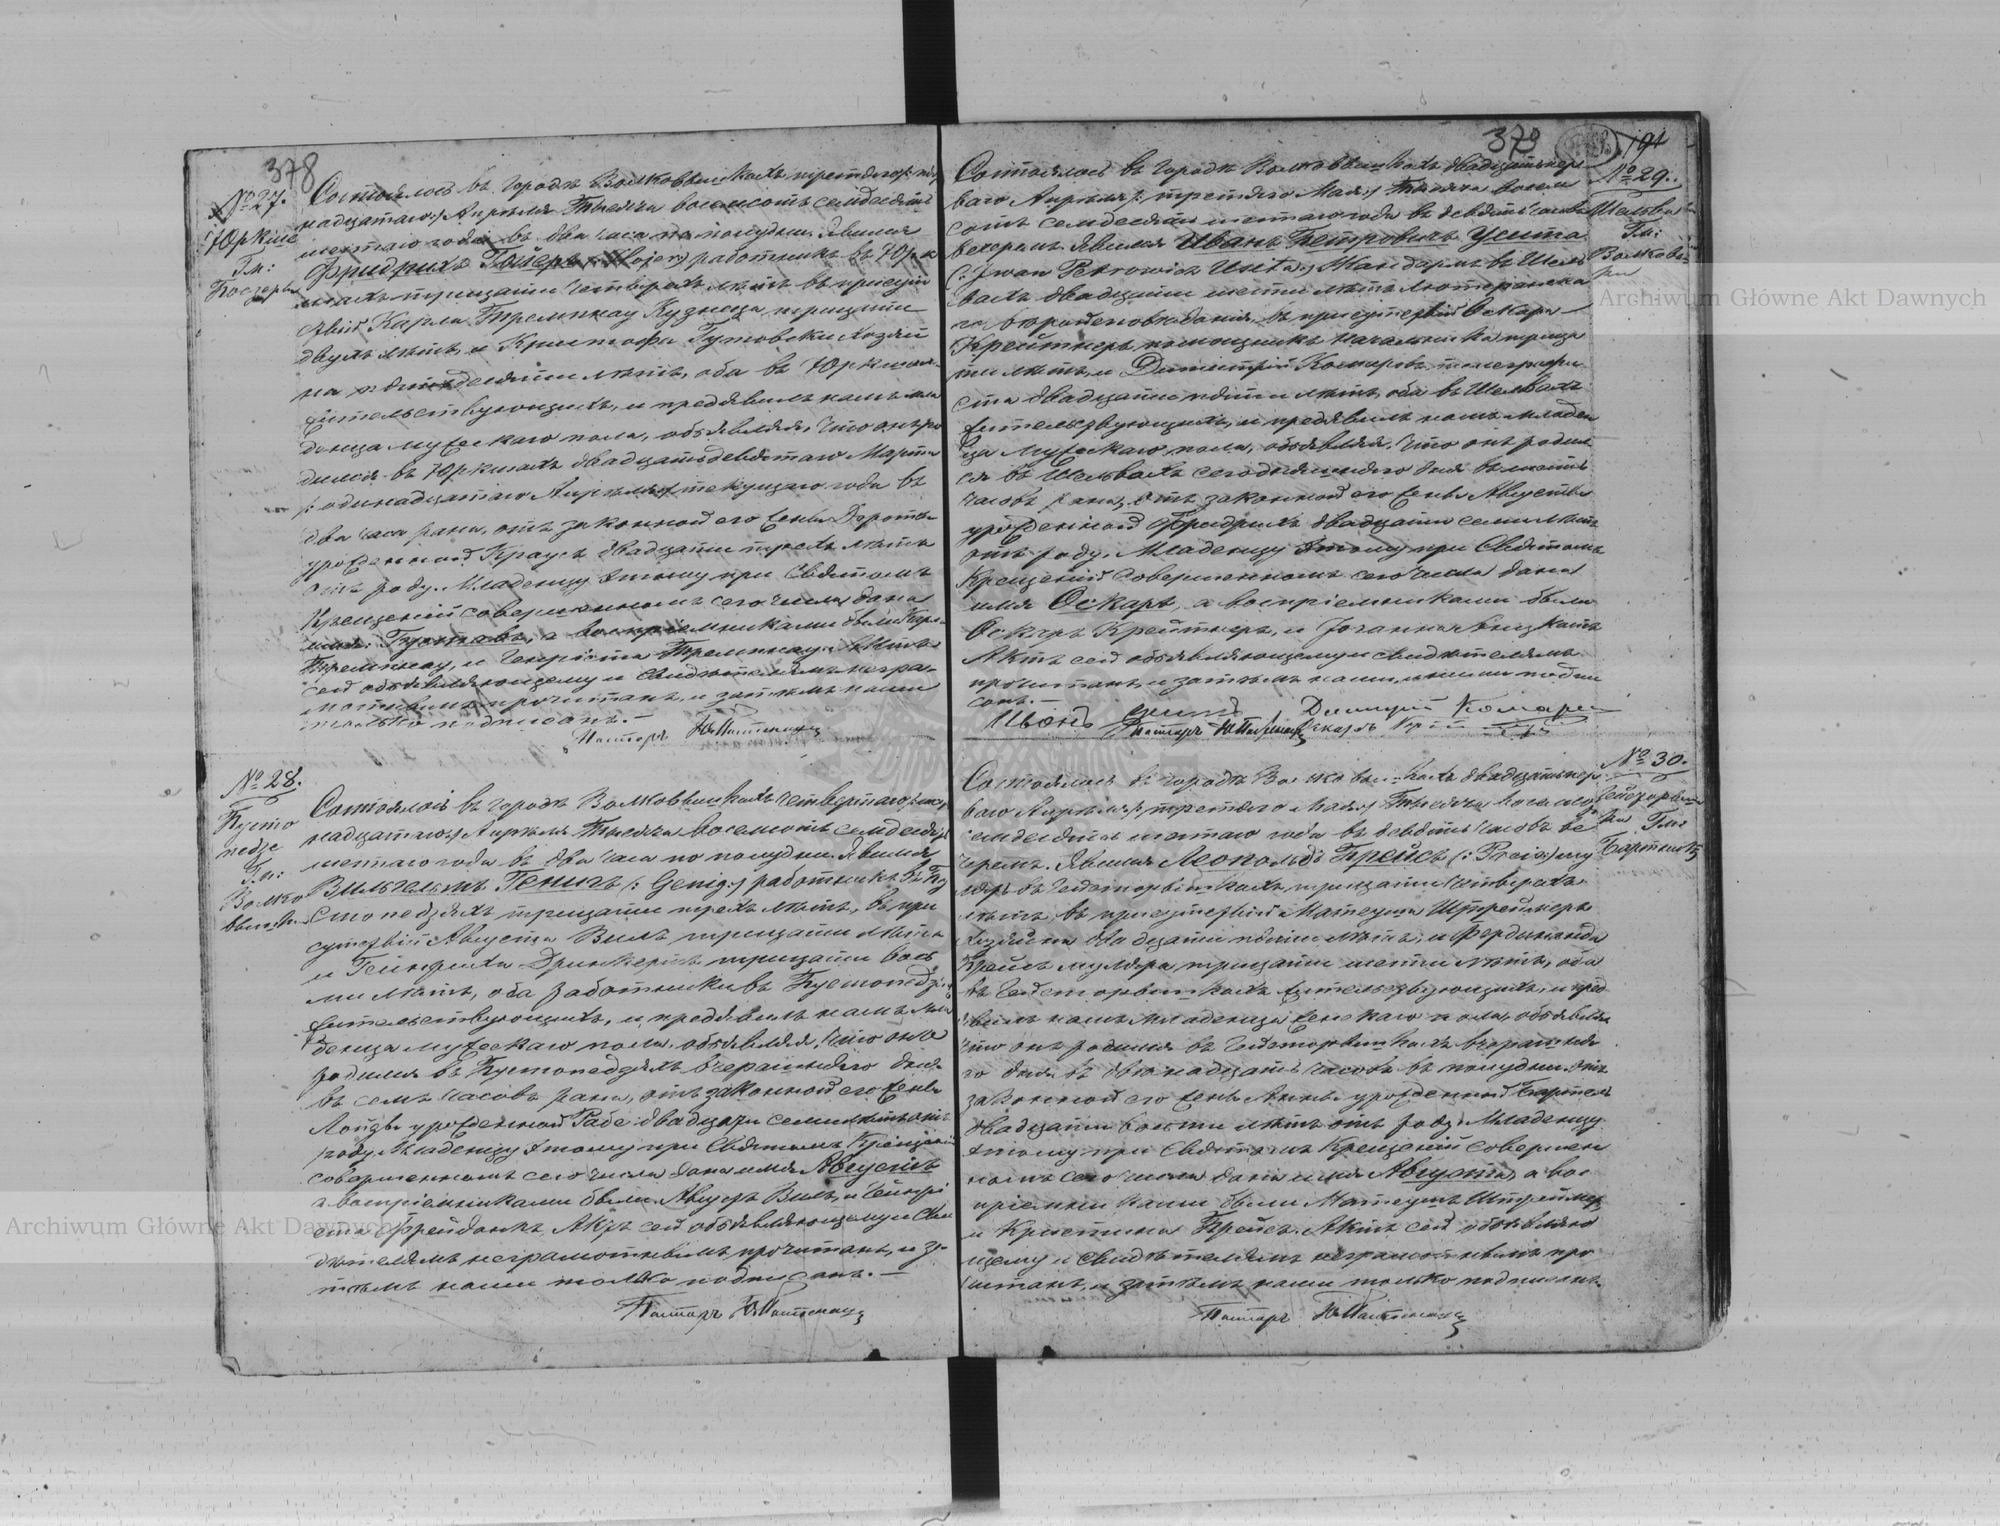 378
№ 27.
Юркше
Гм:
Состоялось въ городѣ Волковышкахъ третяго /: пят
надцатаго :/ Апрѣля тысяча восемсотъ семдесятъ
шестаго года въ два часа по полудни. Явился
Фридрихъ Гойеръ /: Hojer :/ работникъ въ Юрк
шахъ тридцати четырехъ лѣтъ, въ присут
ствіи Карла Тремпнау Кузнеца, тридцати
двухъ лѣтъ, и Кристофа Гутовски хозяи
на лѣтъ, оба въ Юркшахъ
жительствующихъ, и предъявилъ намъ мла
денца мужескаго пола, объявляя, что онъ ро
дился въ Юркшахъ двадцать девятаго Марта
/: одинадцатаго Апрѣля :/ текущаго года въ
два часа рана, отъ законной его жены Доротеи
урожденной Краусъ двадцати трехъ лѣтъ
отъ роду. Младенцу этому при Святомъ
Крещеніи совершенномъ сего числа, дано
имя: Густавъ, а воспріемниками были Карлъ
Тремпнау, и Генріета Тремпнау. Актъ
сей объявляющему и свидѣтелямъ негра-
мотнымъ прочитанъ, и затѣмъ нами
только подписанъ. —
Пасторъ
№ 28.
Пусто
педзе
Гм:
Волко
вышки
Состоялось въ городѣ Волковышкахъ четвертаго /: шест
надцатаго :/ Апрѣля тысяча восемсотъ семдесятъ
шестаго года въ два часа по полудни. Явился
Вильгельмъ Генигъ /: Genig :/ работникъ въ Пу
стопедзяхъ тридцати трехъ лѣтъ, въ при
сутствіи Августа Виль тридцати лѣтъ
и Гейнриха тридцати вось
ми лѣтъ, оба работники въ Пустопедзяхъ
жительствующихъ, и предъявилъ намъ мла
денца мужескаго пола, объявляя, что онъ
родился въ Пустопедзяхъ вчерашняго дня
въ семь часовъ рана, отъ законной его жены
Луизы урожденной Рабе двадцати семи лѣтъ отъ
роду. Младенцу этому при Святомъ Крещеніи
совершенномъ сего числа дано имя Августъ
а воспріемниками были Августъ Виль, и Генрі
ета Фрейданкъ. Актъ сей объявляющему и сви
дѣтелямъ неграмотнымъ прочитанъ, и за-
тѣмъ нами только подписанъ. —
Пасторъ
379
194
№ 29.
Шельвы
Гм:
Состоялось въ городѣ Волковышкахъ двадцать пер
ваго Апрѣля /: третяго Мая :/ тысяча восем
сотъ семдесятъ шестаго года въ девять часовъ
вечеромъ. Явился Иванъ Петровичъ Усита
/: Jwan Petrowicz Usita :/ Жандармъ въ Шель
вахъ двадцати шести лѣтъ лютеранска
го вѣроисповѣданія, въ присутствіи Оскара
Крейтнеръ, помощникъ начальника, тридца
ти лѣтъ, и Димитрій Комаровъ телеграфи
ста двадцати пяти лѣтъ, оба въ Шельвахъ
жительствующихъ, и предъявилъ намъ младен
ца мужескаго пола, объявляя, что онъ родил
ся въ Шельвахъ сегодняшняго дня въ шесть
часовъ рана, отъ законной его жены Августы
урожденной Фридрихъ двадцати семи лѣтъ
отъ роду. Младенцу этому при Святомъ
Крещеніи совершенномъ сего числа дано
имя Оскаръ, а воспріемниками были
Оскаръ Крейтнеръ, и Іоганна
Актъ сей объявляющему и свидѣтелямъ
прочитанъ, и затѣмъ нами, и ними подпи
санъ. —
Иванъ Димитрій Комаровъ
Пасторъ Оскаръ
№ 30.
Гм:
Состоялось въ городѣ Волковышкахъ двадцать пер
ваго Апрѣля /: третяго Мая :/ тысяча восемсотъ
семдесятъ шестаго года въ девять часовъ ве
черемъ. Явился Леопольдъ Прейсъ /: Preis :/ му
ляръ въ тридцати четырехъ
лѣтъ въ присутствіи Матеуша Штреймеръ
хозяина двадцати пяти лѣтъ, и Фердинанда
Прейсъ муляра, тридцати шести лѣтъ, оба
въ жительствующихъ, и пред
явилъ намъ младенца женскаго пола, объявляя
что онъ родился въ вчерашня
го дня въ двѣнадцать часовъ въ полудни, отъ
законной его жены Анны урожденной Бартель
двадцати шести лѣтъ отъ роду. Младенцу
этому при Святомъ Крещеніи совершен
номъ сего числа дано имя Августа, а вос
пріемниками были Матеушъ Штреймеръ
и Кристина Прейсъ. Актъ сей объявляю
щему и свидѣтелямъ неграмотнымъ про
читанъ, и затѣмъ нами только подписанъ.
Пасторъ
Archiwum Główne Akt Dawnych
Archiwum Główne Akt Dawnych